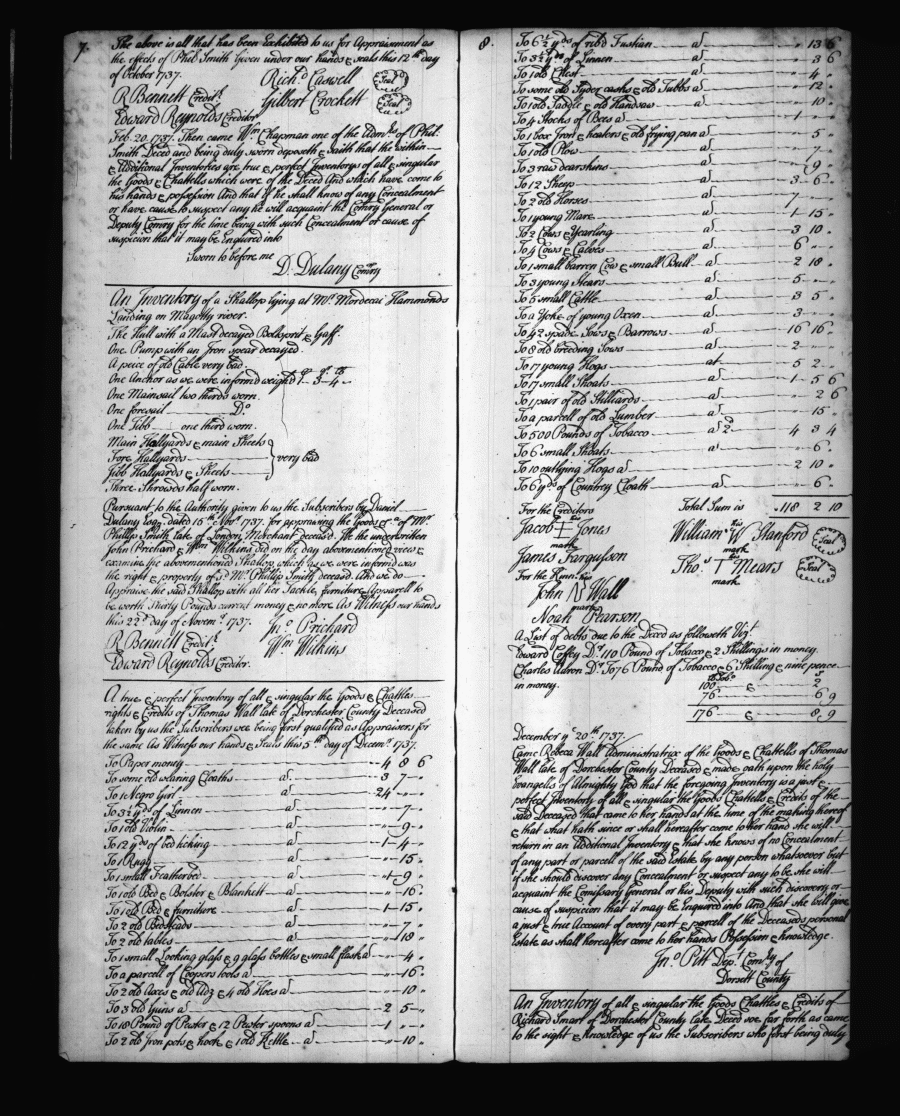 7.
The above is all that has been Exhibited to us for Appraisement as
the effects of Phil: Smith Given under our hands & seals this 12th day
of October 1737.
Richd. Caswell Seal
R Bennett Creditr.
Gilbert Crockett Seal
Edward Reynolds Creditor
Feb. 20. 1737. Then came Wm Chapman one of the Admrs. of Phil:
Smith Deced and being duly sworn deposeth & saith that the within
& Additional Inventories are true & perfect Inventorys of all & singular
the Goods & Chattells which were of the Deced And which have come to
his hands & possession And that if he shall know of any Concealment
or have cause to suspect any he will acquaint the Comry General or
Deputy Comry for the time being with such Concealment or cause of
suspicion that it may be Enquired into
Sworn to before me
D. Dulany Comry
An Inventory of a Shallop lying at Mr. Mordecai Hammonds
Landing on Magotty river.
The Hull with a Mast decayed Boltsprit & Gaff.
One Pump with an Iron spear decayed.
A peice of old Cable very bad.
One Anchor as we were informd weight 1 - 3 - 4
One Mainsail two thirds worn.
One foresail Do
One Jibb one third worn.
Main Hallyards & main Sheets
Fore Hallyards
very bad
Jibb Hallyards & Sheets
Three Shrowds half worn.
Pursuant to the Authority given to us the Subscribers by Daniel
Dulany Esqr. dated 15th Novr. 1737. for appraising the Goods &c of Mr.
Phillip Smith late of London Merchant deceasd. We the underwritten
John Prichard & Wm Wilkins did on the day abovementioned view &
examine the abovementioned Shallop which as we were informed was
the right & property of sd. Mr. Phillip Smith deceasd. And we do
Appraise the said Shallop with all her Tackle, furniture Apparell to
be worth Thirty Pounds current money & no more As Witness our hands
this 22d. day of Novemr. 1737.
Jno. Prichard
R Bennett Creditr.
Wm Wilkins
Edward Reynolds Creditor.
A true & perfect Inventory of all & singular the Goods & Chattles
rights & Credits of Thomas Wall late of Dorchester County Deceased
taken by us the Subscribers we being first qualified as Appraisers for
the same As Witness our hands & Seals this 5th day of Decemr. 1737.
To Paper money 4 8 6
To some old waring Cloaths at 3 7
To 1 Negro Girl at 24
To 3½ yds of Linnen at 7
To 1 old Violin at 9
To 12 yds of bed ticking at 1 4
To 1 Rugg at 15
To 1 small Featherbed at 1 9
To 1 old Bed & Bolster & Blankett at 16
To 1 old Bed & furniture at 1 15
To 2 old Bedsteads at 7
To 2 old tables at 18
To 1 small Looking glass & 9 glass bottles & small flask at 4
To a parcell of Coopers tools at 16
To 2 old Axes & old Adz & 4 old Hoes at 10
To 3 old Guns at 2 5
To 10 Pound of Pewter & 12 Pewter spoons at 1
To 2 old Iron pots & hook & 1 old Kettle at 10
8.
To 6½ yds of ribd Fustian at 13 6
To 3½ yds of Linnen at 3 6
To 1 old Chest at 4
To some old Syder casks & old Tubbs at 12
To 1 old Saddle & old Handsaw at 10
To 4 Stocks of Bees at 1
To 1 box Iron & heaters & old frying pan at 5
To 1 old Plow at 7
To 3 raw dearskins at 9
To 12 Sheep at 3 6
To 2 old Horses at 7
To 1 young Mare at 1 15
To 2 Cows & Yearling at 3 10
To 4 Cows & Calves at 6
To 1 small barren Cow & small Bull at 2 18
To 3 young Stears at 5
To 5 small Cattle at 3 5
To a Yoke of young Oxen at 3
To 42 spade Sows & Barrows at 16 16
To 8 old breeding Sows at 2
To 17 young Hogs at 5 2
To 17 small Shoats at 1 5 6
To 1 pair of old Stilliards 2 6
To a parcell of old Lumber at 15
To 500 Pounds of Tobacco at 2d 4 3 4
To 6 small Shoats at 6
To 10 outlying Hogs at 2 10
To 6 yds of Country Cloath at 6
For the Creditors Total Sum is 118 2 10
Jacob his mark Jones
William his W mark Stanford Seal
James Fargusson
Thos. his T mark Mears Seal
For the Kinn
John his N mark Wall
Noah Pearson
A List of debts due to the Deced as followeth Vizt.
Edward Coffey Dr. 110 Pound of Tobacco & 2 Shillings in money
Charles Adron Dr. To 76 Pound of Tobacco & 6 Shilling & nine pence
in money
lb Tobo. s
100 & 2
76 6 9
176 & 8 9
December ye 20th 1737.
Came Rebeca Wall Administratrix of the Goods & Chattells of Thomas
Wall late of Dorchester County Deceased & made oath upon the holy
Evangelis of Almighty God that the foregoing Inventory is a just &
perfect Inventory of all & singular the Goods Chattells & Credits of the
said Deceased that came to her hands at the time of the making hereof
& that what hath since or shall hereafter come to her hand she will
return in an Additional Inventory & that she knows of no Concealment
of any part or parcell of the said Estate by any person whatsoever but
if she should discover any Concealment or suspect any to be she will
acquaint the Comissary General or his Deputy with such discovery or
cause of suspicion that it may be Enquired into And that she will give
a just & true Account of every part & parcell of the Deceaseds personal
Estate as shall hereafter come to her hands Possession & knowledge.
Jno. Pitt Dept. Comry of
Dorsett County
An Inventory of all & singular the Goods Chattles & Credits of
Richard Smart of Dorchester County late Deced soe far forth as came
to the sight & knowledge of us the Subscribers who first being duly